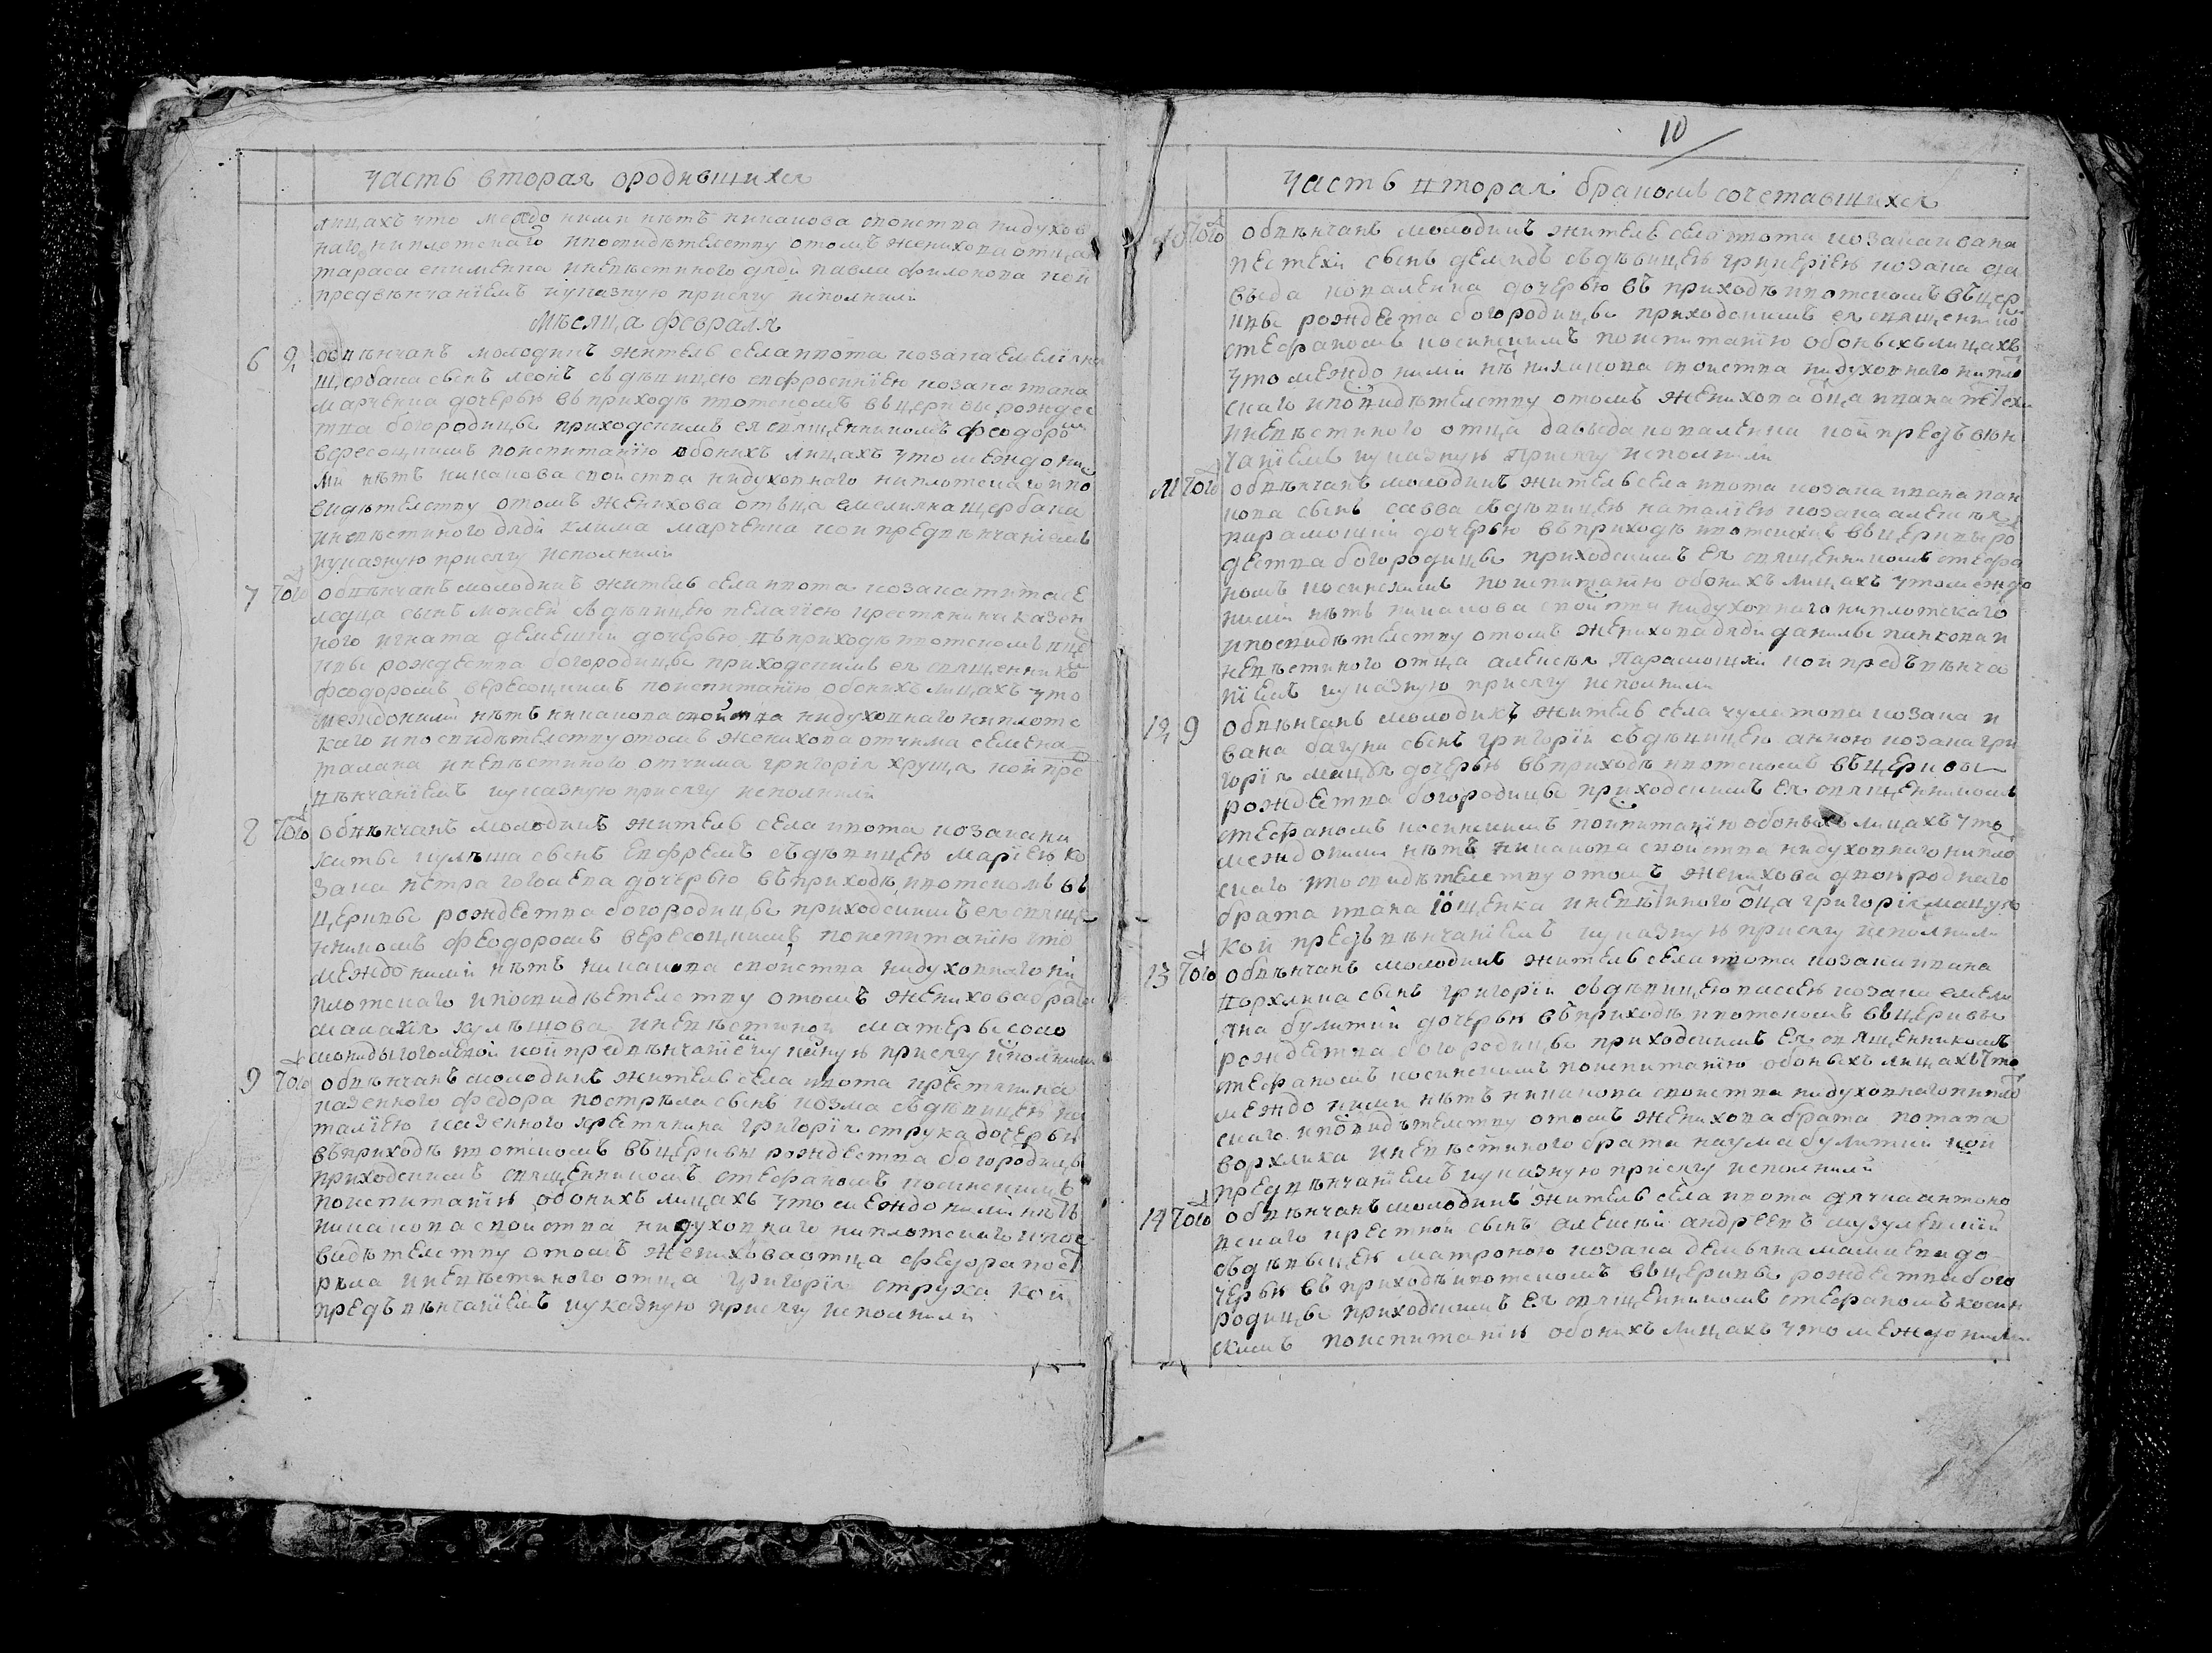 часть вторая ородившихся
лицахъ что междо ними нѣтъ никакова своиства нидухов
наго, ниплотскаго ипосвидѣтелству отомъ жениховаотца
тараса якименка иневѣстиного дяди павла филонова кои
предвѣнчаніемъ иуказную присягу исполнили
мѣсяца февраля
6 9, обвѣнчанъ молодикъ житель села ивота козака емелiяна
щербака сынъ леонъ съдѣвицею евфросиніею козака ивана
марченка дочерью въприходѣ ивотскомъ вьцеркви рождес
тва богородицы приходскимъ ея священникомъ феодоромъ
вересоцкимъ поиспитанію обоихъ лицахъ что междо ни
ми нѣтъ никакова свойства нидуховного ниплотскагоипо
видѣтелству отомъ женихова отьца емелияна щербака
иневѣстиного дяди клима марченка кои предвѣнчаніемъ
иуказную присягу исполнили
7 Того обвѣнчанъ молодикъ житель села ивота козака тита се
ледца сынъ моисей съдѣвицею пелагiею крестянина казен
ного игната демешки дочерью въприходѣ ивотскомъ вце
ркви рождества богородицы приходскимъ ея священнико
феодоромъ вересоцкимъ поиспитанію обоихъ лицахъ что
междоними нѣтъ никакова свойства нидуховнаго ниплотс
каго ипосвидѣтелствуотомъ женихова отчима семена
талана иневѣстиного отчима григорія хруща кои пре
двѣнчаніемъ иуказную присягу исполнили
8 Того обвѣнчанъ молодикъ житель села ивота козака ни
киты кулѣша сынъ евфремъ съдѣвицею маріею ко
зака петра гоголева дочерью въприходѣ, ивотскомъ въ
церквы рождества богородицы приходскимъ ея свяще
нникомъ феодоромъ вересоцкимъ поиспитанію что
междо ними нѣтъ никакова своиства нидуховнаго ни
плотскаго ипосвидѣтелству отомъ женихова брата
кулѣшова иневѣстиной матеры соло
мониды гоголевой кои предвѣнчаніемъ присягу исполнили
9 Того обвѣнчанъ молодикъ житель села ивота крестянина
казенного федора постръла сынъ козма съдѣвицею на
таліею казенного крестянина григорія струка дочерью
въприходѣ ивотскомъ вьцеркви рождества богородицы
приходскимъ священникомъ стефаномъ косинскимъ
поиспитанію обоихъ лицахъ что междо ними нѣтъ
никакова своиства нидуховнаго ниплотскаго ипос
видѣтелству отомъ жениховаотца федора пост
рѣла иневѣстиного отца григорія струка кои
предъвѣнчаніемъ иуказную присягу исполнили
10
часть вторая бракомъ сочетавшихся
10 Того обвѣнчанъ молодикъ житель села ивота козака ивана
пестехи сынъ демидъ съдѣвицею гликеріею козака да
выда коваленка дочерью въ приходѣ ивотскомъ въцер
квы рождества богородицы приходскимъ ея священико
стефаномъ косинскимъ поиспитанію обоихъ лицахъ
что междо ними нѣтъ никакова своиства нидуховнаго нипло
скаго ипосвидѣтелству отомъ женихова отца ивана пестехи
иневѣстиного отца давыда коваленка кои предъвѣн
чаніемъ иуказную присягу исполнили
11 Того обвѣнчанъ молодикъ житель села ивота козака ивана пан
кова сынъ савва съдѣвицею наталіею козака алексѣя
парамошки дочерью въприходѣ ивотскомъ вьцерквы ро
дества богородицы приходскимъ ея священникомъ стефа
номъ косинскимъ поиспитанію обоихъ лицахъ чтомеждо
ними нѣтъ никакова свойства нидуховнаго ниплотскаго
ипосвидѣтелству отомъ женихова дяди данилы панкова и
невѣстиного отца алексѣя парамошки кои предъвѣнча
ніемъ иуказную присягу исполнили
12, 9 обвѣнчанъ молодикъ житель села чулатова козака и
вана багуни сынъ григорій съдѣвицею анною козака гри
горія мацуя дочерью въприходѣ ивотскомъ въцеркви
рождества богородицы приходскимъ ея священникомъ
стефаномъ косинскимъ поиспитанію обоихъ лицахъ что
междоними нѣтъ никакова своиства нидуховнаго нипло
скаго ипосвидѣтелству отомъ женихова двоюроднаго
брата ивана іощенка иневѣстиного отца григорія мацуя
кои предъвѣнчаніемъ иуказную присягу исполнили
13 Того обвѣнчанъ молодикъ житель села ивота козака ивана
ворхлика сынъ григорій съдѣвицею козака емели
яна булитки дочерью въприходѣ ивотскомъ вьцерквы
рождества богородицы приходскимъ ея священникомъ
стефаномъ косинскимъ поиспитанію обоихъ лицахъ что
междо ними нѣтъ никакова своиства нидуховнаго нипло
скаго ипосвидѣтелству отомъ женихова брата потапа
ворхлика иневѣстиного брата наума булитки кои
предвѣнчаніемъ иуказную присягу исполнили
14 Того обвѣнчанъ молодикъ житель села ивота дячка антоно
вскаго крестной сынъ алексѣй андреевъ музулевскій
съдѣвыцею матроною козака демьяна мамиева до
черью въ приходѣ ивотскомъ вьцерквы рождества бого
родицы приходскимъ ея священникомъ стефаномъ косин
скимъ поиспитанію обоихъ лицахъ что междо ними